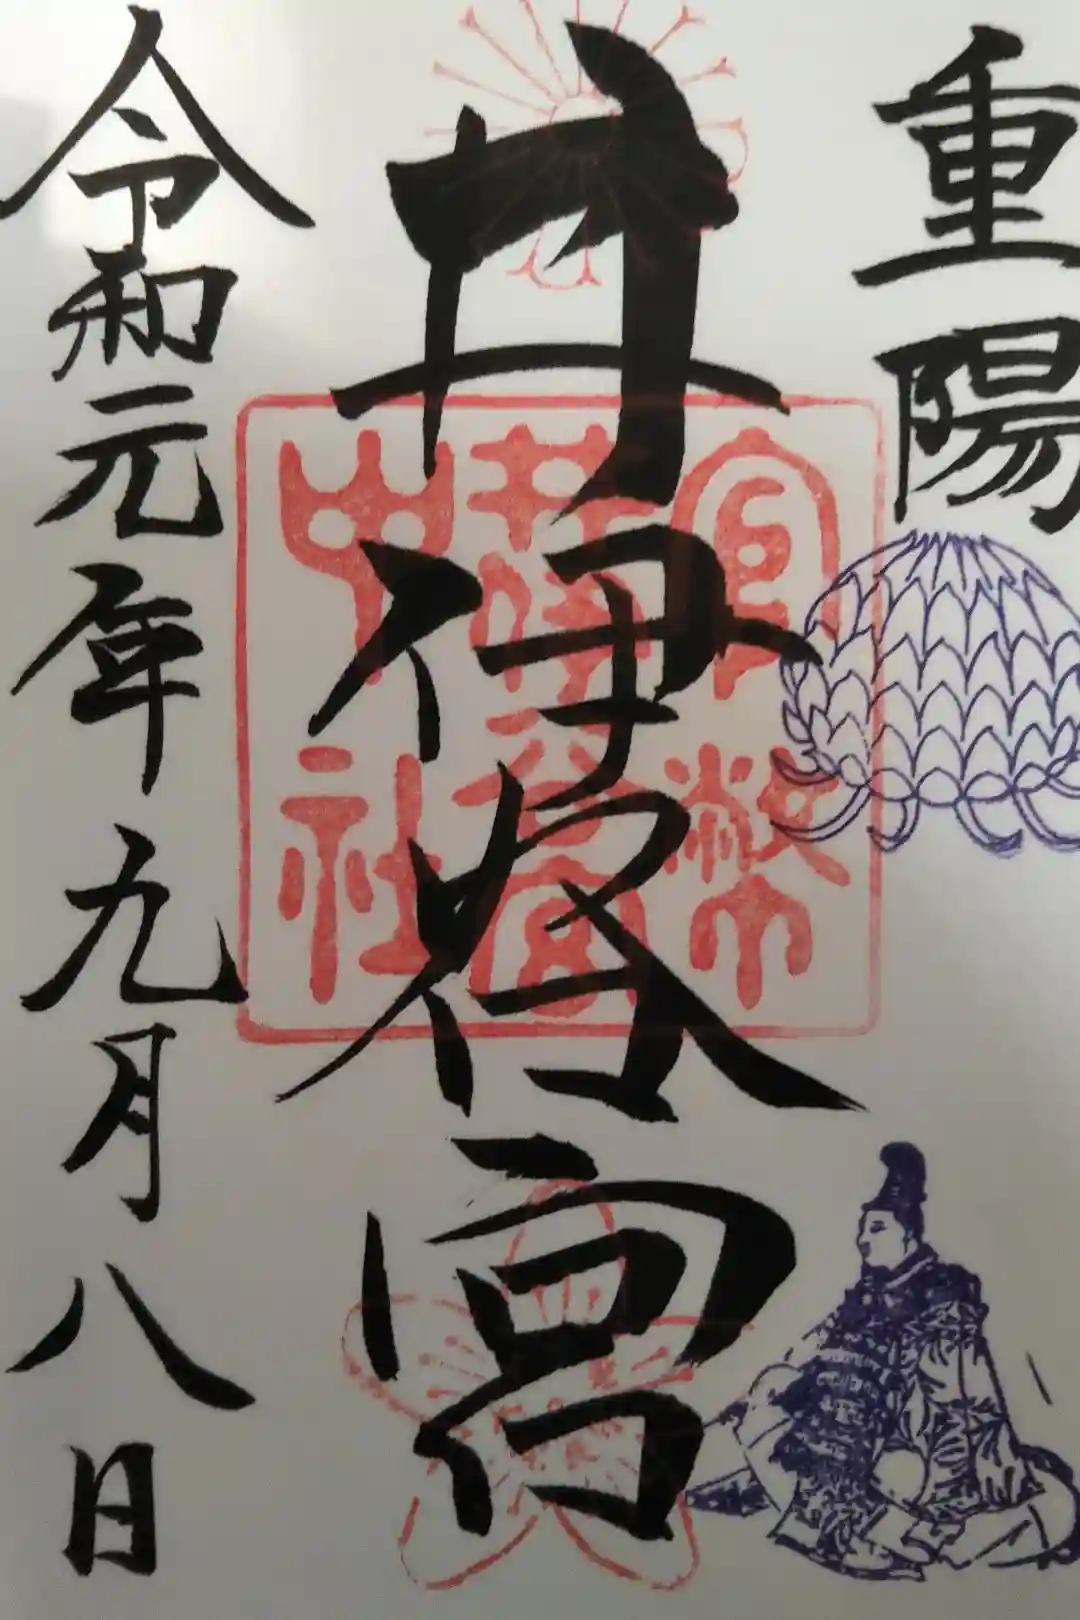 重陽
井伊谷宮
官幣
井伊谷宮
中社
令和元年九月八日